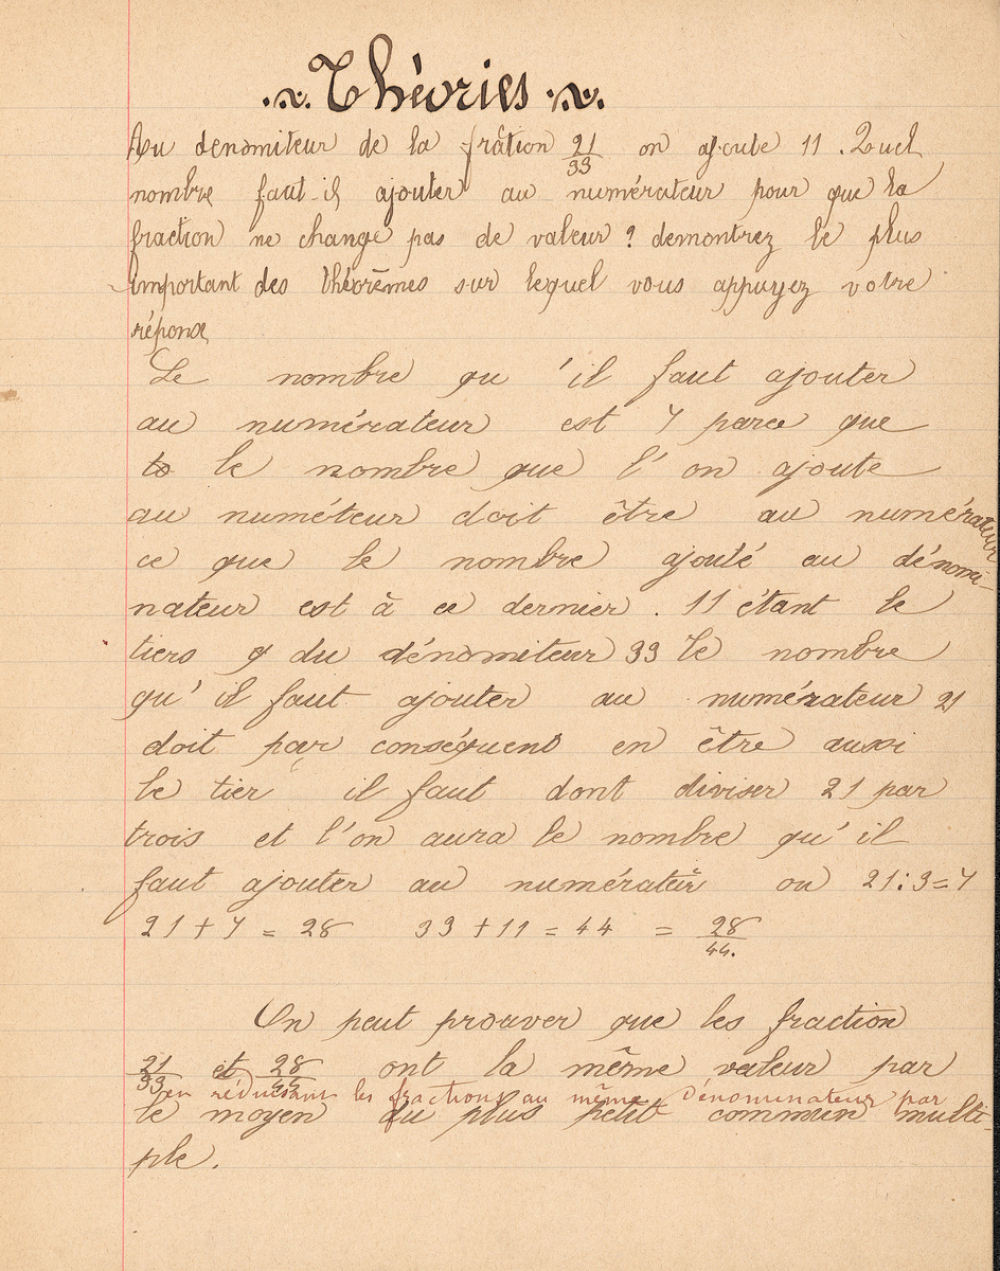 Théories
Au denomiteur de la frâtion 21/33 on ajoute 11. Quel
nombre faut-il ajouter au numérateur pour que la
fraction ne change pas de valeur ? demontrez le plus
important des théorèmes sur lequel vous appuyez votre
réponse
Le nombre qu'il faut ajouter
au numérateur est 7 parce que
le nombre que l'on ajoute
au numéteur doit être au numérateur
ce que le nombre ajouté au dénomi-
nateur est à ce dernier. 11 étant le
tiers du dénomiteur 33 le nombre
qu'il faut ajouter au numérateur 21
doit par conséquent en être aussi
le tier il faut dont diviser 21 par
trois et l'on aura le nombre qu'il
faut ajouter au numérateur ou 21:3=7
21+7 = 28 33+11 = 44 = 28/44.
On peut prouver que les fraction
21/33 et 28/44 ont la même valeur par
en réduisant les fractions au même dénominateur par
le moyen du plus petit commun multi-
ple.